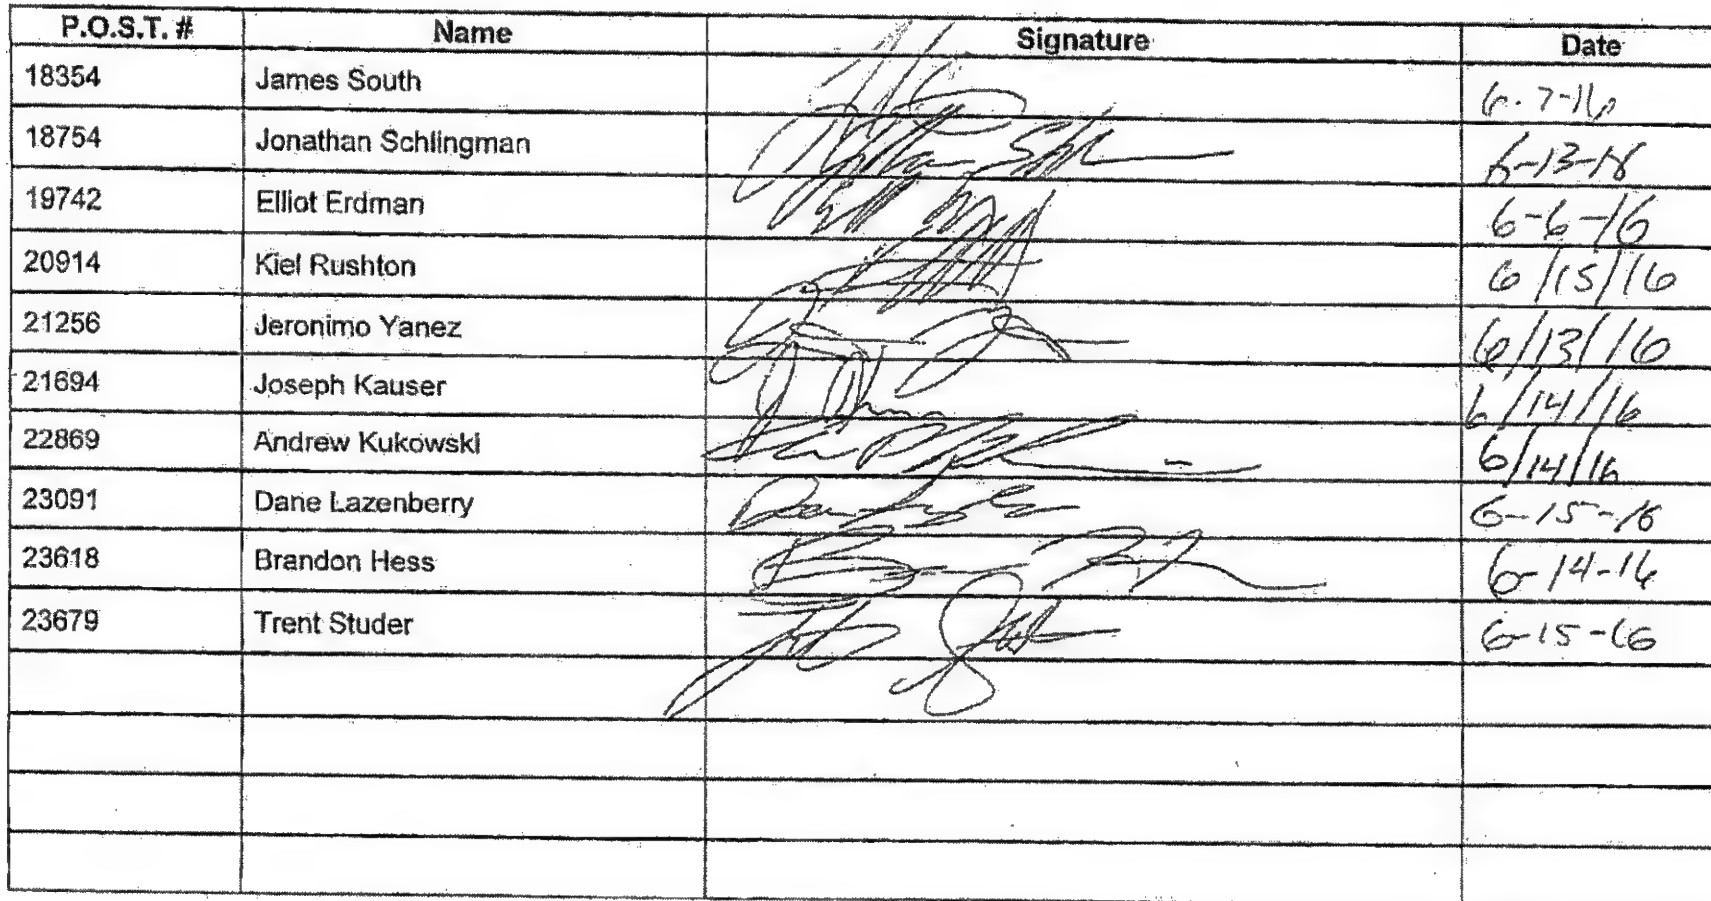 P.O.S.T. # Name Signature Date
18354 James South 6-7-16
18754 Jonathan Schlingman 6-13-16
19742 Elliot Erdman 6-6-16
20914 Kiel Rushton 6/15/16
21256 Jeronimo Yanez 6/13/16
21694 Joseph Kauser 6/14/16
22869 Andrew Kukowski 6/14/16
23091 Dane Lazenberry 6-15-16
23618 Brandon Hess 6-14-16
23679 Trent Studer 6-15-16